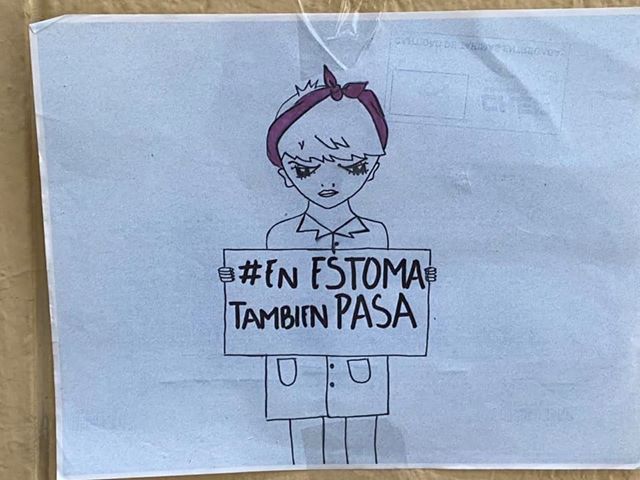 #EN ESTOMA
TAMBIEN PASA